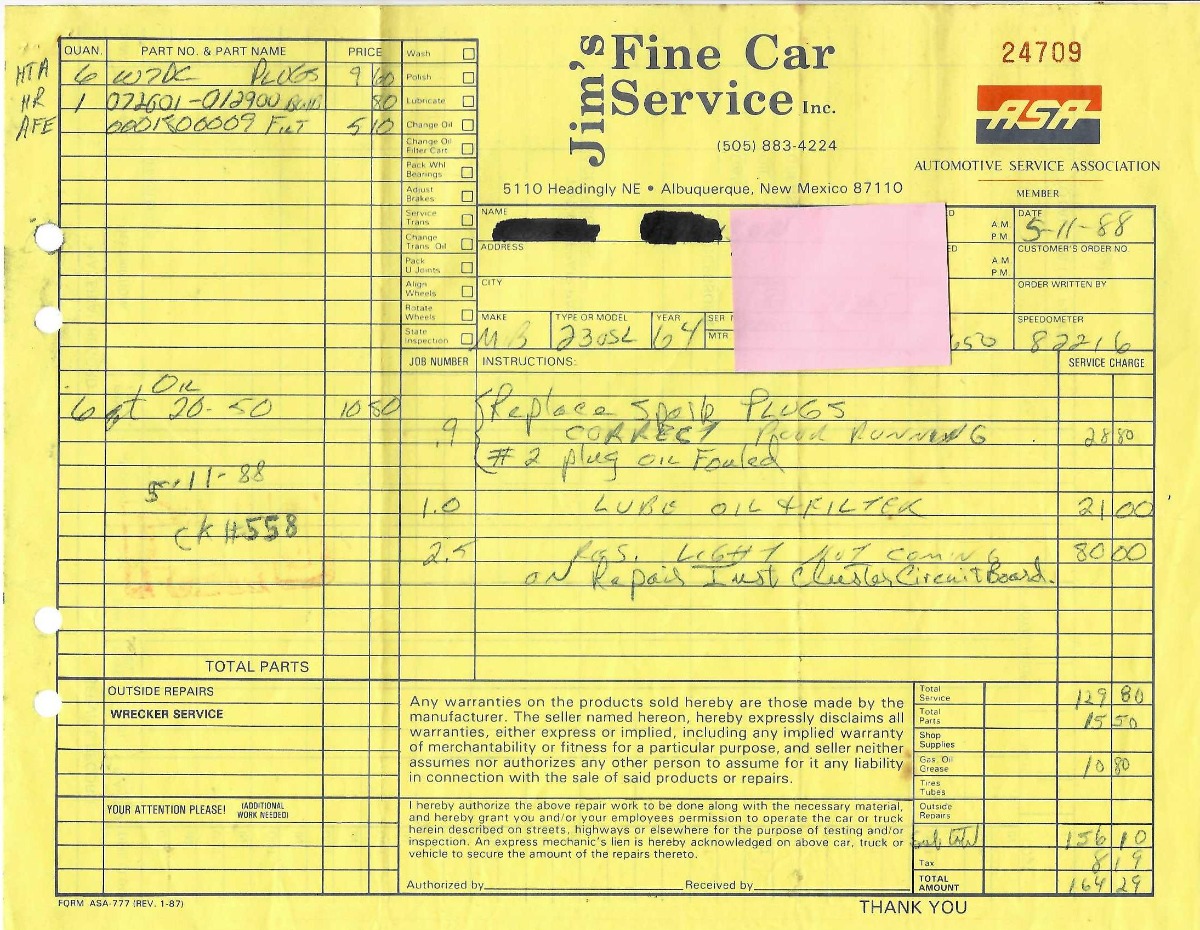 Jim's Fine Car Service Inc.
(505) 883-4224
5110 Headingly NE • Albuquerque, New Mexico 87110
24709
ASA
AUTOMOTIVE SERVICE ASSOCIATION
MEMBER
QUAN. PART NO. & PART NAME PRICE
HTA 6 W7DC PLUGS 9 60
HR 1 072601-012900 Bulb 80
AFE 0001800009 FILT 5 10
Wash
Polish
Lubricate
Change Oil
Change Oil Filter Cart
Pack Whl Bearings
Adjust Brakes
Service Trans
Change Trans. Oil
Pack U Joints
Align Wheels
Rotate Wheels
State Inspection
NAME
ADDRESS
CITY
A.M.
P.M.
A.M.
P.M.
DATE 5-11-88
CUSTOMER'S ORDER NO.
ORDER WRITTEN BY
MAKE MB
TYPE OR MODEL 230SL
YEAR 64
SER
MTR 650
SPEEDOMETER 82216
JOB NUMBER INSTRUCTIONS: SERVICE CHARGE
OIL
6 qt 20-50 10 80
.9 Replace Spark PLUGS
CORRECT POOR RUNNING 28 80
#2 plug OIL Fouled
5-11-88
CK #558
1.0 LUBE OIL & FILTER 21 00
2.5 RES. LIGHT NOT COMING 80 00
ON Repair Inst Cluster Circuit Board.
TOTAL PARTS
OUTSIDE REPAIRS
WRECKER SERVICE
YOUR ATTENTION PLEASE! (ADDITIONAL WORK NEEDED)
Any warranties on the products sold hereby are those made by the
manufacturer. The seller named hereon, hereby expressly disclaims all
warranties, either express or implied, including any implied warranty
of merchantability or fitness for a particular purpose, and seller neither
assumes nor authorizes any other person to assume for it any liability
in connection with the sale of said products or repairs.
I hereby authorize the above repair work to be done along with the necessary material,
and hereby grant you and/or your employees permission to operate the car or truck
herein described on streets, highways or elsewhere for the purpose of testing and/or
inspection. An express mechanic's lien is hereby acknowledged on above car, truck or
vehicle to secure the amount of the repairs thereto.
Authorized by Received by
Total Service 129 80
Total Parts 15 50
Shop Supplies
Gas, Oil Grease 10 80
Tires Tubes
Outside Repairs
Sub total 156 10
Tax 8 19
TOTAL AMOUNT 164 29
FORM ASA-777 (REV. 1-87)
THANK YOU